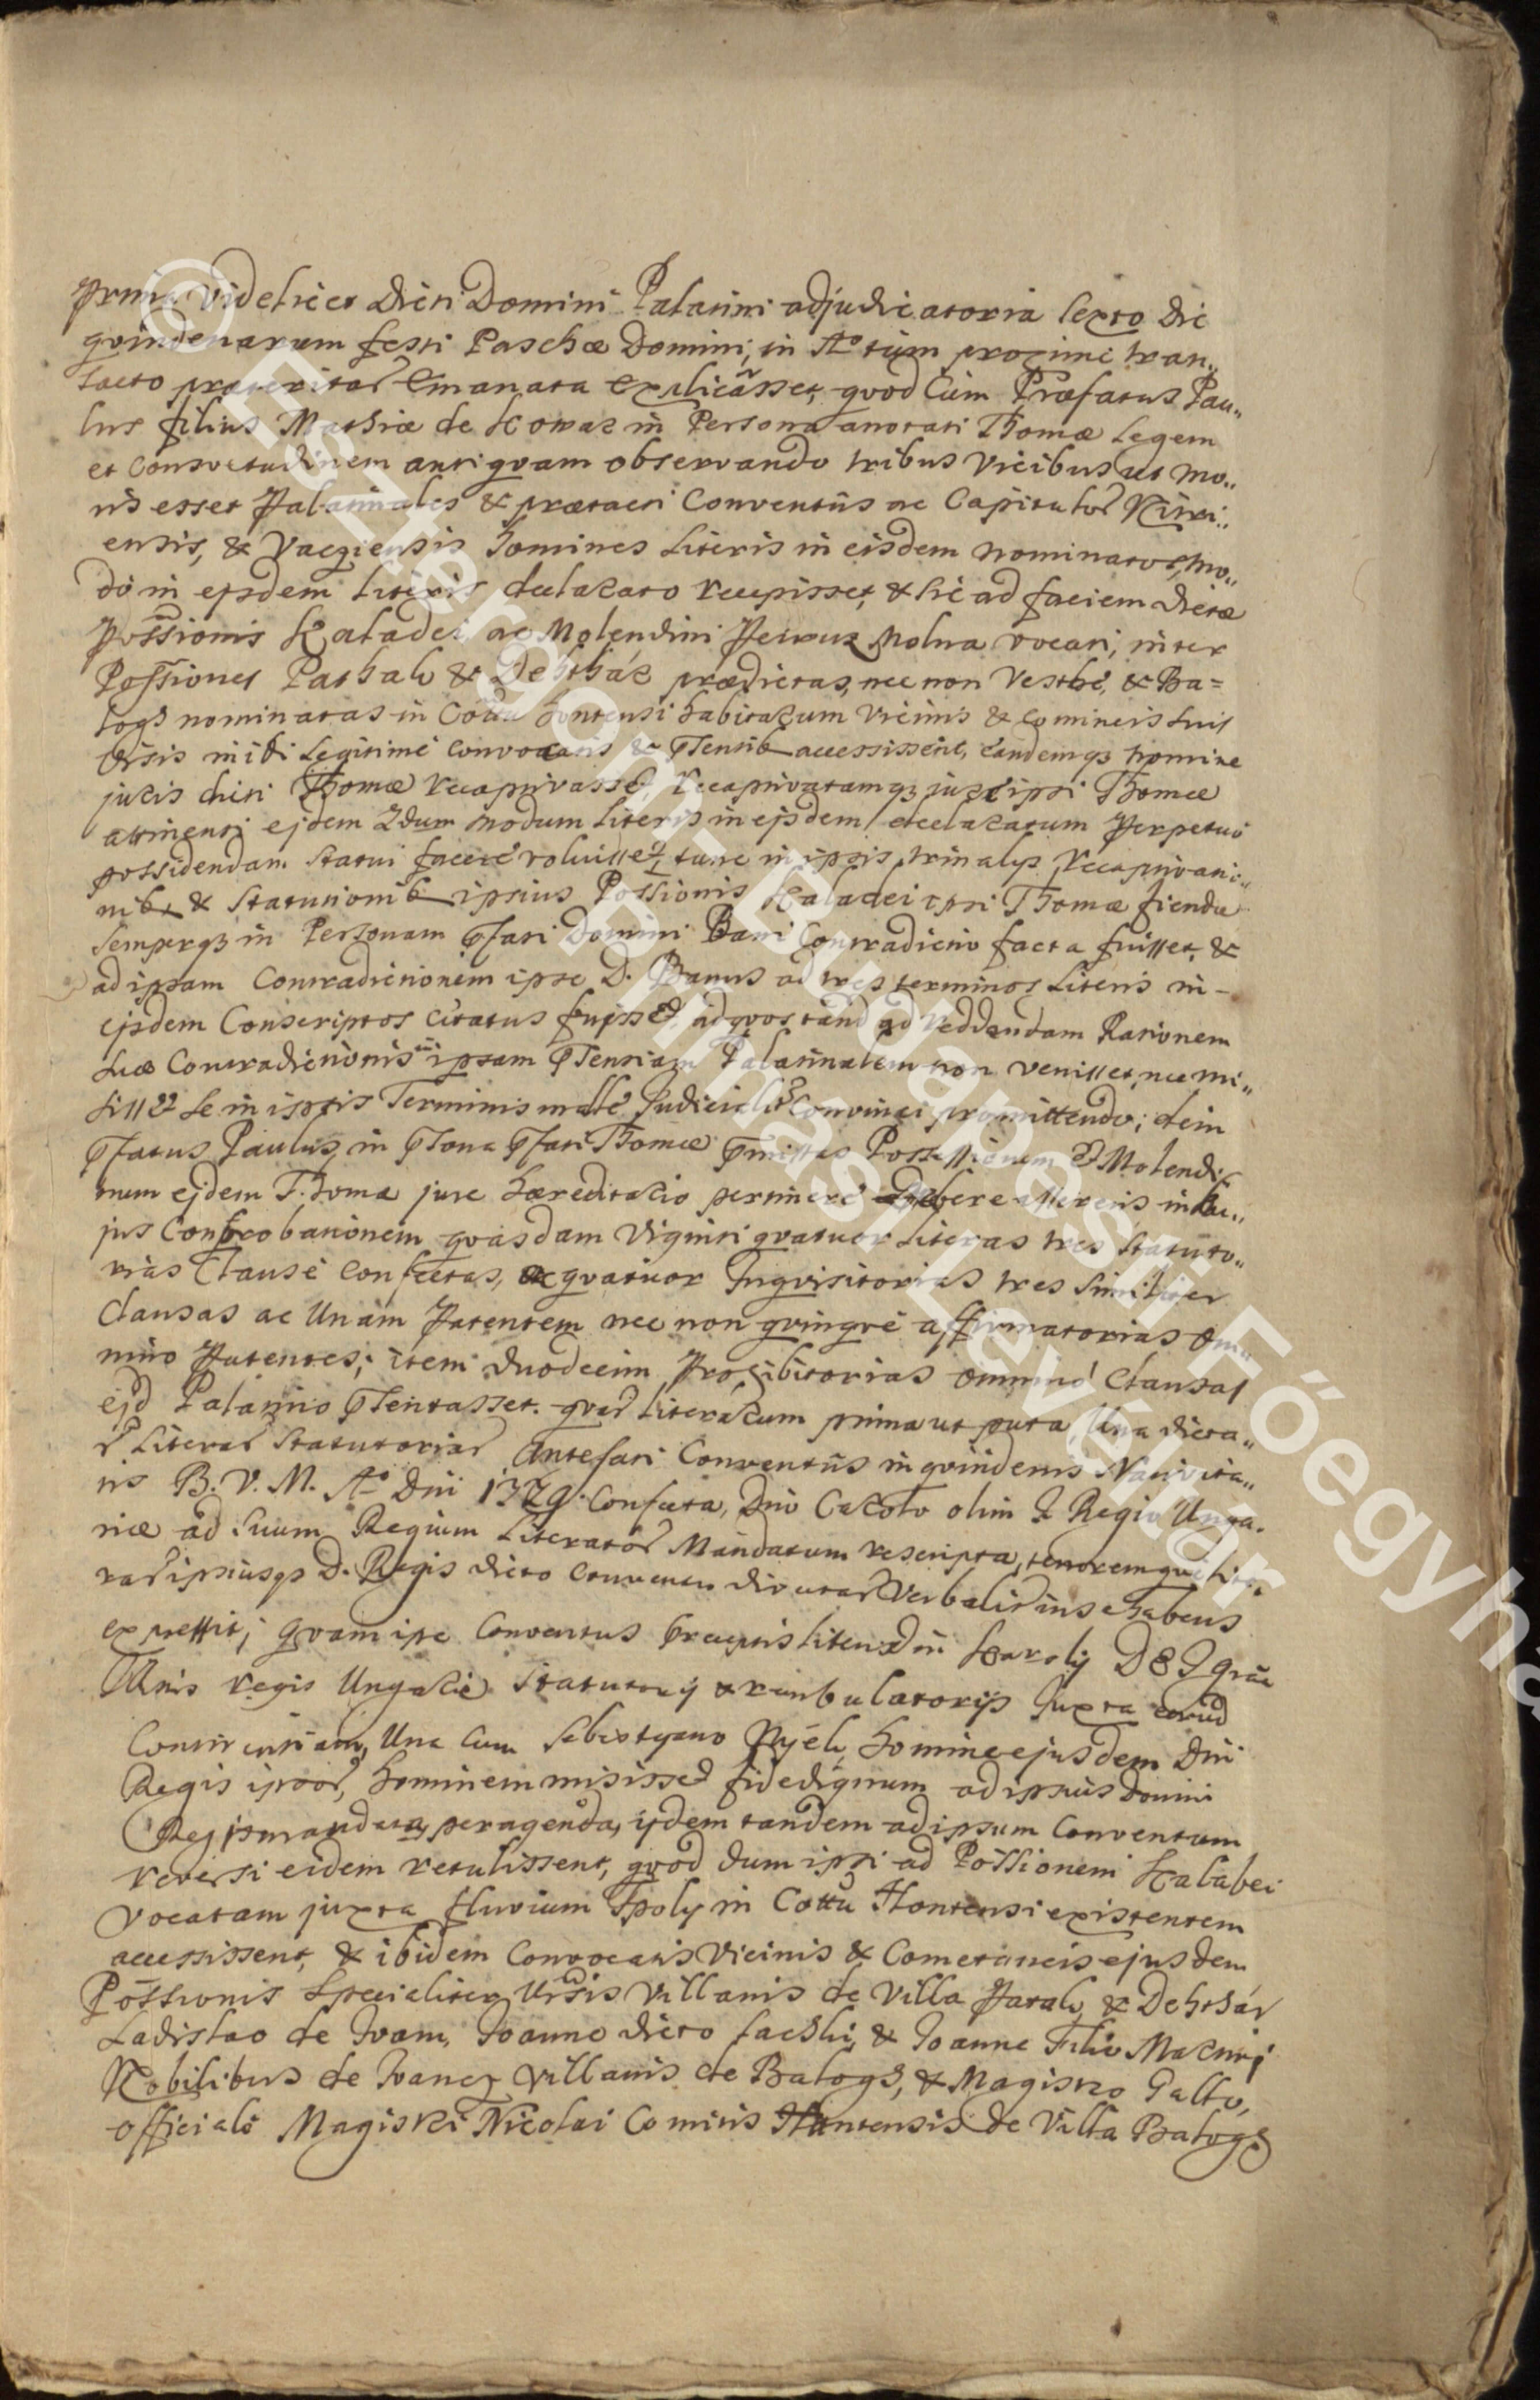 prima videlicet dicti Domini Palatini adjudicatoria sexto die
qvindenarum festi Paschæ Domini, in Aō tūm proxime tran„
sacto præteritar͂ Emanata Explicāsset, qvod Cum Præfatus Pau„
lus filius Mathiæ de Kowar in Persona anotati Thomæ Legem
et Consvetudinem antiqvam observando tribus vicibus ut mo„
ris esset Palatinales & prætacti Conventūs ac Capitulor͂ Nitri„
ensis, & Vacziensis homines Literis in eisdem nominatos, mo„
do in ejsdem Literis declarato recepisset, & hic ad faciem dictæ
Poss̄ionis Kaladei, ac Molendini Petrus Molna vocati, inter
Possiones Pathak & Dehthár prædictas, nec non Vesthé, & Ba=
logs nominatas in Cottu Hontensi habitarum vicinis & Comineis suis
Vr̄sis inibi Legitimé convocatis & p̄sentib accessissent, eandemq3 nomine
juris dicti Thomæ recaptivasset, recaptivatamq3 jure ipsi Thomæ
attinenti ejdem 2dum modum Literis in ejsdem declaratum Perpetuó
possidendam Statui facere voluisset, tunc in ipsis trinalys recaptivati„
nib & Statutionib ipsius Poss̄ionis Kaladei ipsi Thomæ fiendæ
semperq3 in Personam p̄fati Domini Bani Contradictio facta fuisset, &
ad ipsam Contradictionem ipse D. Banus ad tres terminos Literis in-
ejsdem Conscriptos citatus fuisset, ad qvos tand ad reddendam Rationem
suæ Contradictionis in ipsam p̄sentiam Palatinalem non venisset, nec mi„
sisset se in istis Terminis mallé Judicialr Convinci promittendo; dein
p̄fatus Paulus, in p̄sona p̄fati Thomæ p̄missas Possessionem & Molendi„
num ejdem Thomæ jure hæreditario pertinere debere asserens in hu„
jus Conprobationem qvasdam Viginti qvatuor Literas tres Statuto„
rias Clausé Confectas, ac qvatuor Inqvisitorias tres Similiter
Clausas ac Unam Patentem nec non qvinqve affirmatorias Om„
nino Patentes; item duodecim Prohibitorias omnino Clausas
ejd Palatino p̄sentasset. qvar͂ Literarum prima ut puta Una dicta„
r͂ Literar͂ Statutoriar͂ Antefati Conventūs in qvindenis Nativita„
tis B. V. M. Aō Dni 1329. Confecta, Dno Carolo olim I Regio Unga„
riæ ad Suum Regium Literator͂ Mandatum rescripta, tenoremqve Lite„
rar͂ ipsiusq3 D. Regis dicto Conventu directar͂ Verbalir̄ in se habens
expressit; qvam ipse Conventus præceptis Literis Dni Karoly D& I grãa
Unis regis Ungarie Statutorij & reambulatorijs Juxta earūd
Continentiam, Una cum Sebestyano Nyék homine ejusdem Dni
Regis ipsor͂, hominem misisset fidedignum ad ipsius Domini
Regis mandata peragenda, ijdem tandem ad ipsum Conventum
reversi eidem retulissent, qvod dum ipsi ad Poss̄ionem Kalabei
vocatam juxta fluvium Ipoly in Cottu Hontensi existentem
accessissent, & ibidem Convocatis Vicinis & Cometaneis ejusdem
Poss̄ionis specialiter Vr̄sis Villanis de Villa Patak, & Dehthár
Ladislao de Ivam, Joanne dicto Sacshi, & Joanne Filio Macniri
Nobilibus de Ivancz Villanis de Balogs, & Magistro Gallo,
Officiali Magistri Nicolai Comitis Hontensis de Villa Balogs